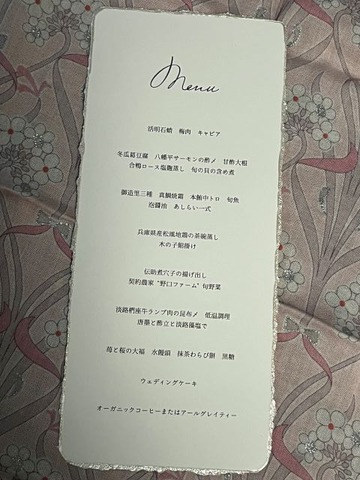 Menu
活明石蛸　梅肉　キャビア
冬瓜葛豆腐　八幡平サーモンの酢〆　甘酢大根
合鴨ロース塩麹蒸し　旬の貝の含め煮
御造里三種　真鯛焼霜　本鮪中トロ　旬魚
泡醤油　あしらい一式
兵庫県産松風地鶏の茶碗蒸し
木の子餡掛け
伝助煮穴子の揚げ出し
契約農家“野口ファーム”旬野菜
淡路椚座牛ランプ肉の昆布〆　低温調理
唐墨と酢立と淡路藻塩で
苺と桜の大福　水饅頭　抹茶わらび餅　黒糖
ウェディングケーキ
オーガニックコーヒーまたはアールグレイティー